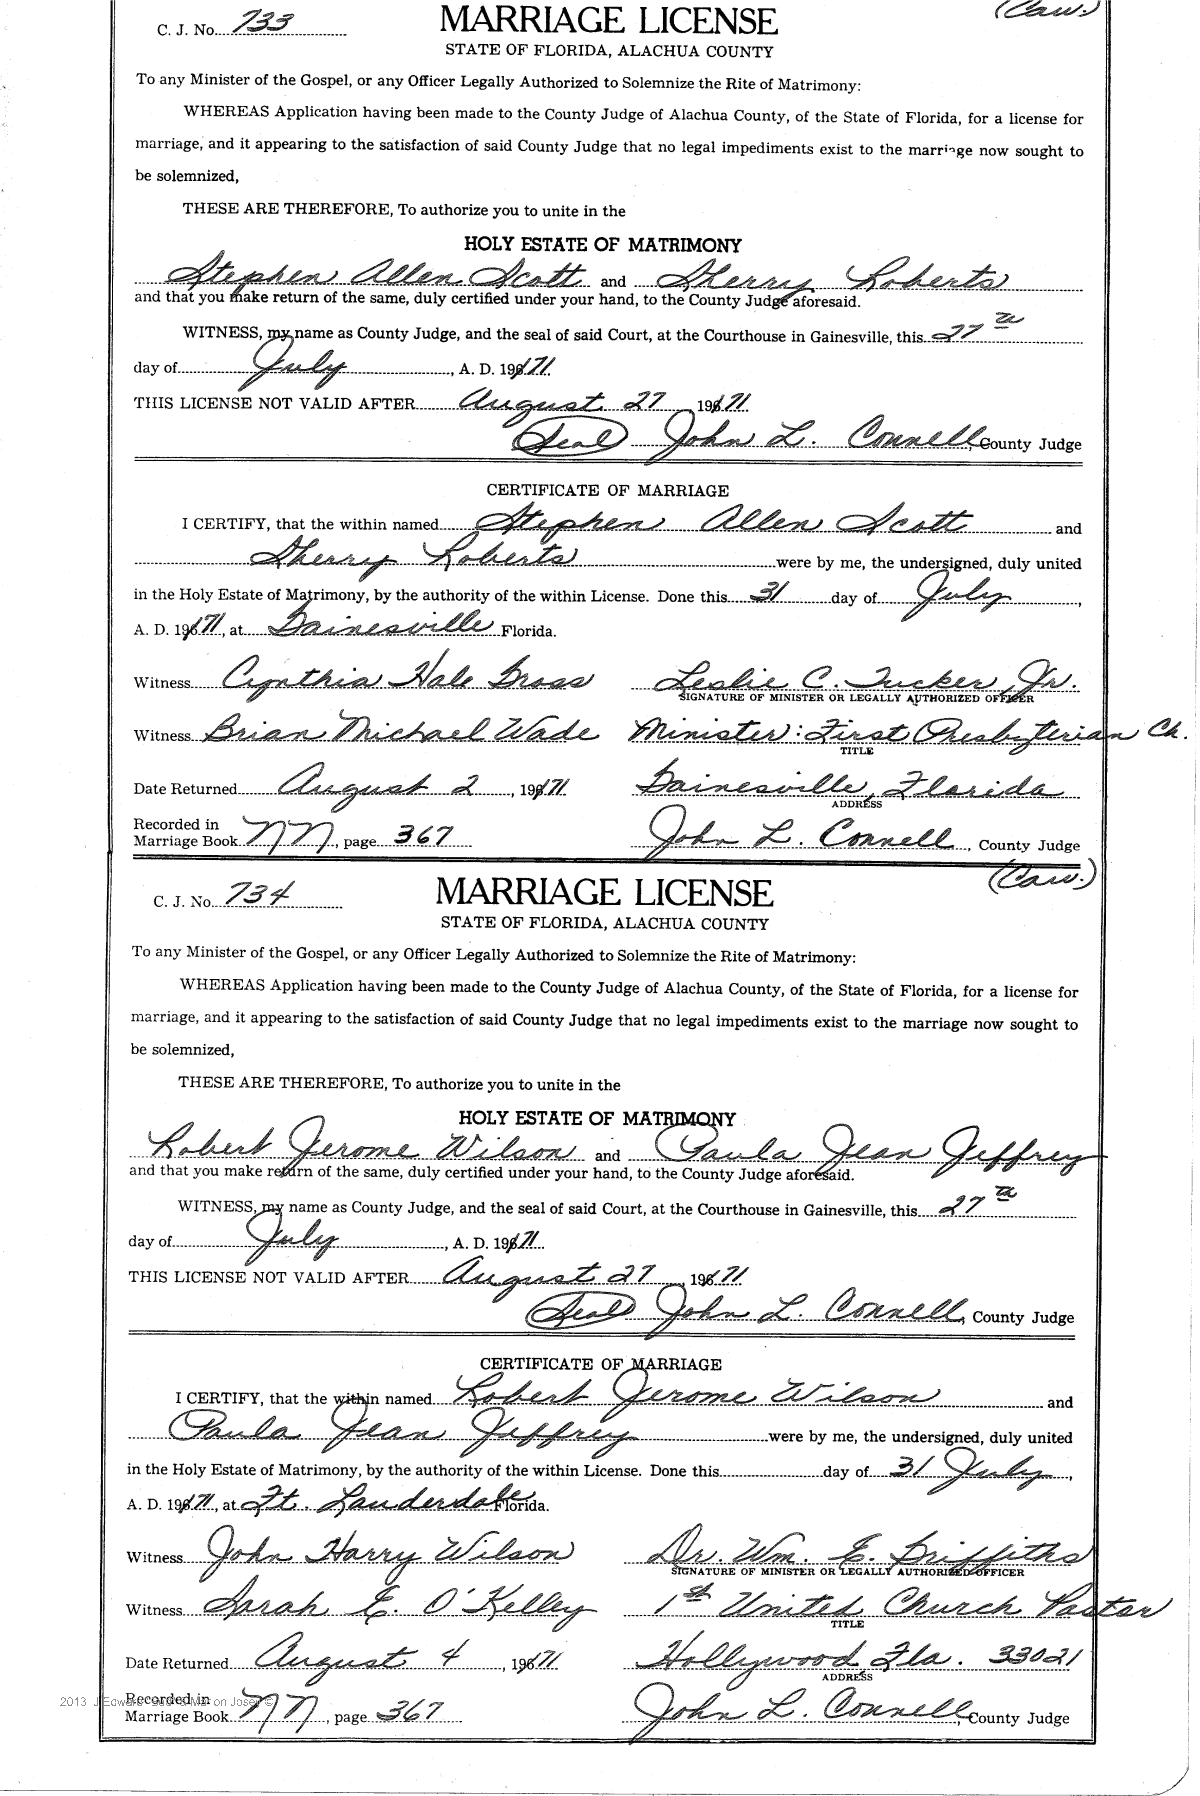 (Caw.)
C. J. No. 733
MARRIAGE LICENSE
STATE OF FLORIDA, ALACHUA COUNTY
To any Minister of the Gospel, or any Officer Legally Authorized to Solemnize the Rite of Matrimony:
WHEREAS Application having been made to the County Judge of Alachua County, of the State of Florida, for a license for
marriage, and it appearing to the satisfaction of said County Judge that no legal impediments exist to the marriage now sought to
be solemnized,
THESE ARE THEREFORE, To authorize you to unite in the
HOLY ESTATE OF MATRIMONY
Stephen Allen Scott and Sherry Roberts
and that you make return of the same, duly certified under your hand, to the County Judge aforesaid.
WITNESS, my name as County Judge, and the seal of said Court, at the Courthouse in Gainesville, this 27th
day of July, A. D. 1971
THIS LICENSE NOT VALID AFTER August 27 1971
(Seal) John L. Connell, County Judge
CERTIFICATE OF MARRIAGE
I CERTIFY, that the within named Stephen Allen Scott and
Sherry Roberts were by me, the undersigned, duly united
in the Holy Estate of Matrimony, by the authority of the within License. Done this 31 day of July,
A. D. 1971, at Gainesville Florida.
Witness Cynthia Hale Gross Leslie C. Tucker, Jr.
SIGNATURE OF MINISTER OR LEGALLY AUTHORIZED OFFICER
Witness Brian Michael Wade Minister: First Presbyterian Ch.
TITLE
Date Returned August 2, 1971 Gainesville, Florida
ADDRESS
Recorded in
Marriage Book NN, page 367 John L. Connell, County Judge
(Caw.)
C. J. No. 734
MARRIAGE LICENSE
STATE OF FLORIDA, ALACHUA COUNTY
To any Minister of the Gospel, or any Officer Legally Authorized to Solemnize the Rite of Matrimony:
WHEREAS Application having been made to the County Judge of Alachua County, of the State of Florida, for a license for
marriage, and it appearing to the satisfaction of said County Judge that no legal impediments exist to the marriage now sought to
be solemnized,
THESE ARE THEREFORE, To authorize you to unite in the
HOLY ESTATE OF MATRIMONY
Robert Jerome Wilson and Paula Jean Jeffrey
and that you make return of the same, duly certified under your hand, to the County Judge aforesaid.
WITNESS, my name as County Judge, and the seal of said Court, at the Courthouse in Gainesville, this 27th
day of July, A. D. 1971
THIS LICENSE NOT VALID AFTER August 27, 1971
(Seal) John L. Connell, County Judge
CERTIFICATE OF MARRIAGE
I CERTIFY, that the within named Robert Jerome Wilson and
Paula Jean Jeffrey were by me, the undersigned, duly united
in the Holy Estate of Matrimony, by the authority of the within License. Done this day of 31 July,
A. D. 1971, at Ft. Lauderdale Florida.
Witness John Harry Wilson Dr. Wm. E. Griffiths
SIGNATURE OF MINISTER OR LEGALLY AUTHORIZED OFFICER
Witness Sarah E. O'Kelley 1st United Church Pastor
TITLE
Date Returned August 4, 1971 Hollywood Fla. 33021
ADDRESS
Recorded in
Marriage Book NN, page 367 John L. Connell, County Judge
2013